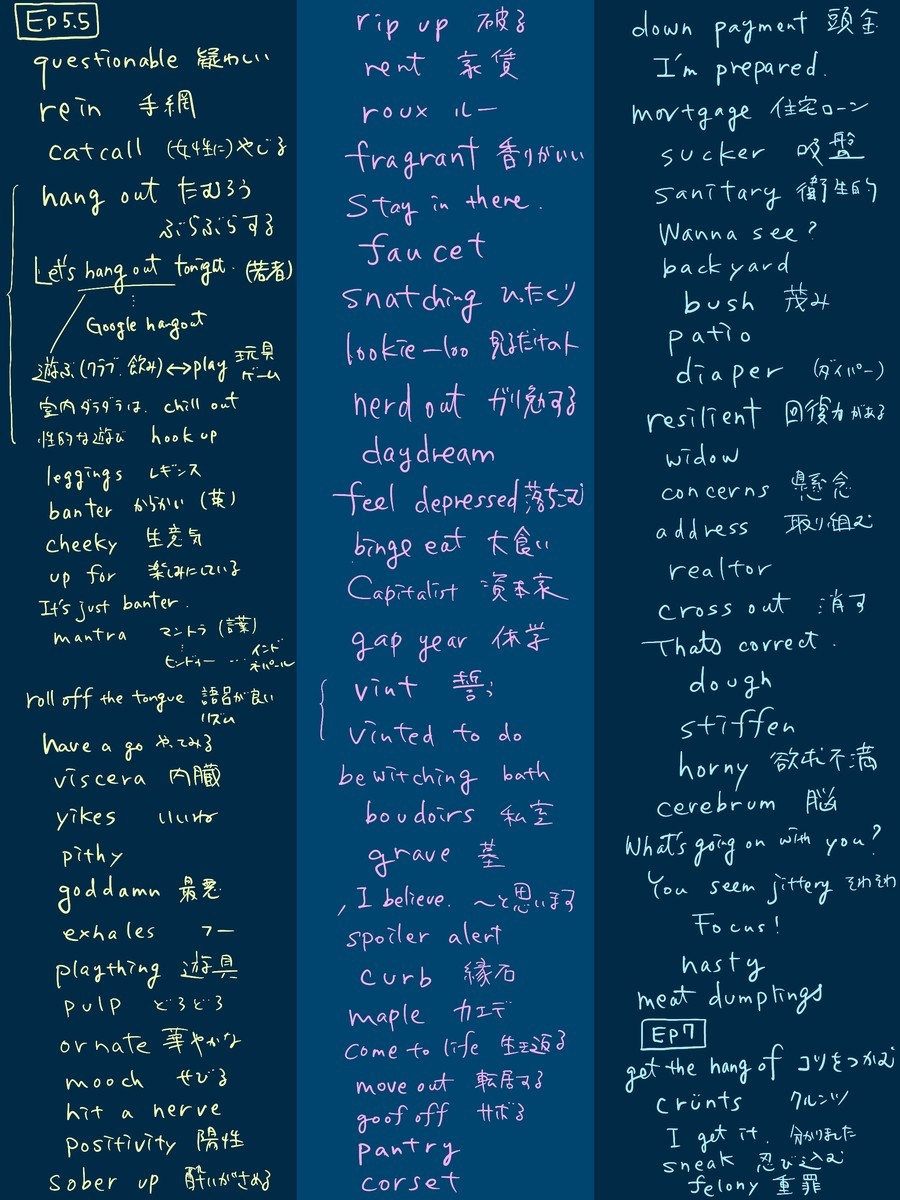 EP5.5
questionable 疑わしい
rein 手網
catcall (女性に)やじる
hang out たむろう
ぶらぶらする
Let's hang out tonight. (若者)
Google hangout
遊ぶ(クラブ、飲み)↔play 玩具
ゲーム
室内ダラダラは、chill out
性的な遊び hook up
leggings レギンス
banter からかい (英)
cheeky 生意気
up for 楽しみにしている
It's just banter.
mantra マントラ (言葉)
ヒンドゥー … インド
ネパール
roll off the tongue 語呂が良い
リズム
have a go やってみる
viscera 内臓
yikes いいね
pithy
goddamn 最悪
exhales フー
plaything 遊具
pulp どろどろ
ornate 華やかな
mooch せびる
hit a nerve
positivity 陽性
sober up 酔いがさめる
rip up 破る
rent 家賃
roux ルー
fragrant 香りがいい
Stay in there.
faucet
snatching ひったくり
lookie-loo 見るだけの人
nerd out ガリ勉する
daydream
feel depressed 落ちこむ
binge eat 大食い
Capitalist 資本家
gap year 休学
vint 誓う
vinted to do
bewitching bath
boudoirs 私室
grave 墓
, I believe. 〜と思います
spoiler alert
curb 縁石
maple カエデ
come to life 生き返る
move out 転居する
goof off サボる
pantry
corset
down payment 頭金
I'm prepared.
mortgage 住宅ローン
sucker 吸盤
sanitary 衛生的
Wanna see?
backyard
bush 茂み
patio
diaper (ダイパー)
resilient 回復力がある
widow
concerns 懸念
address 取り組む
realtor
cross out 消す
Thats correct.
dough
stiffen
horny 欲求不満
cerebrum 脳
What's going on with you?
You seem jittery そわそわ
Focus!
nasty
meat dumplings
EP7
get the hang of コツをつかむ
crünts クルンツ
I get it. 分かりました
sneak 忍び込む
felony 重罪